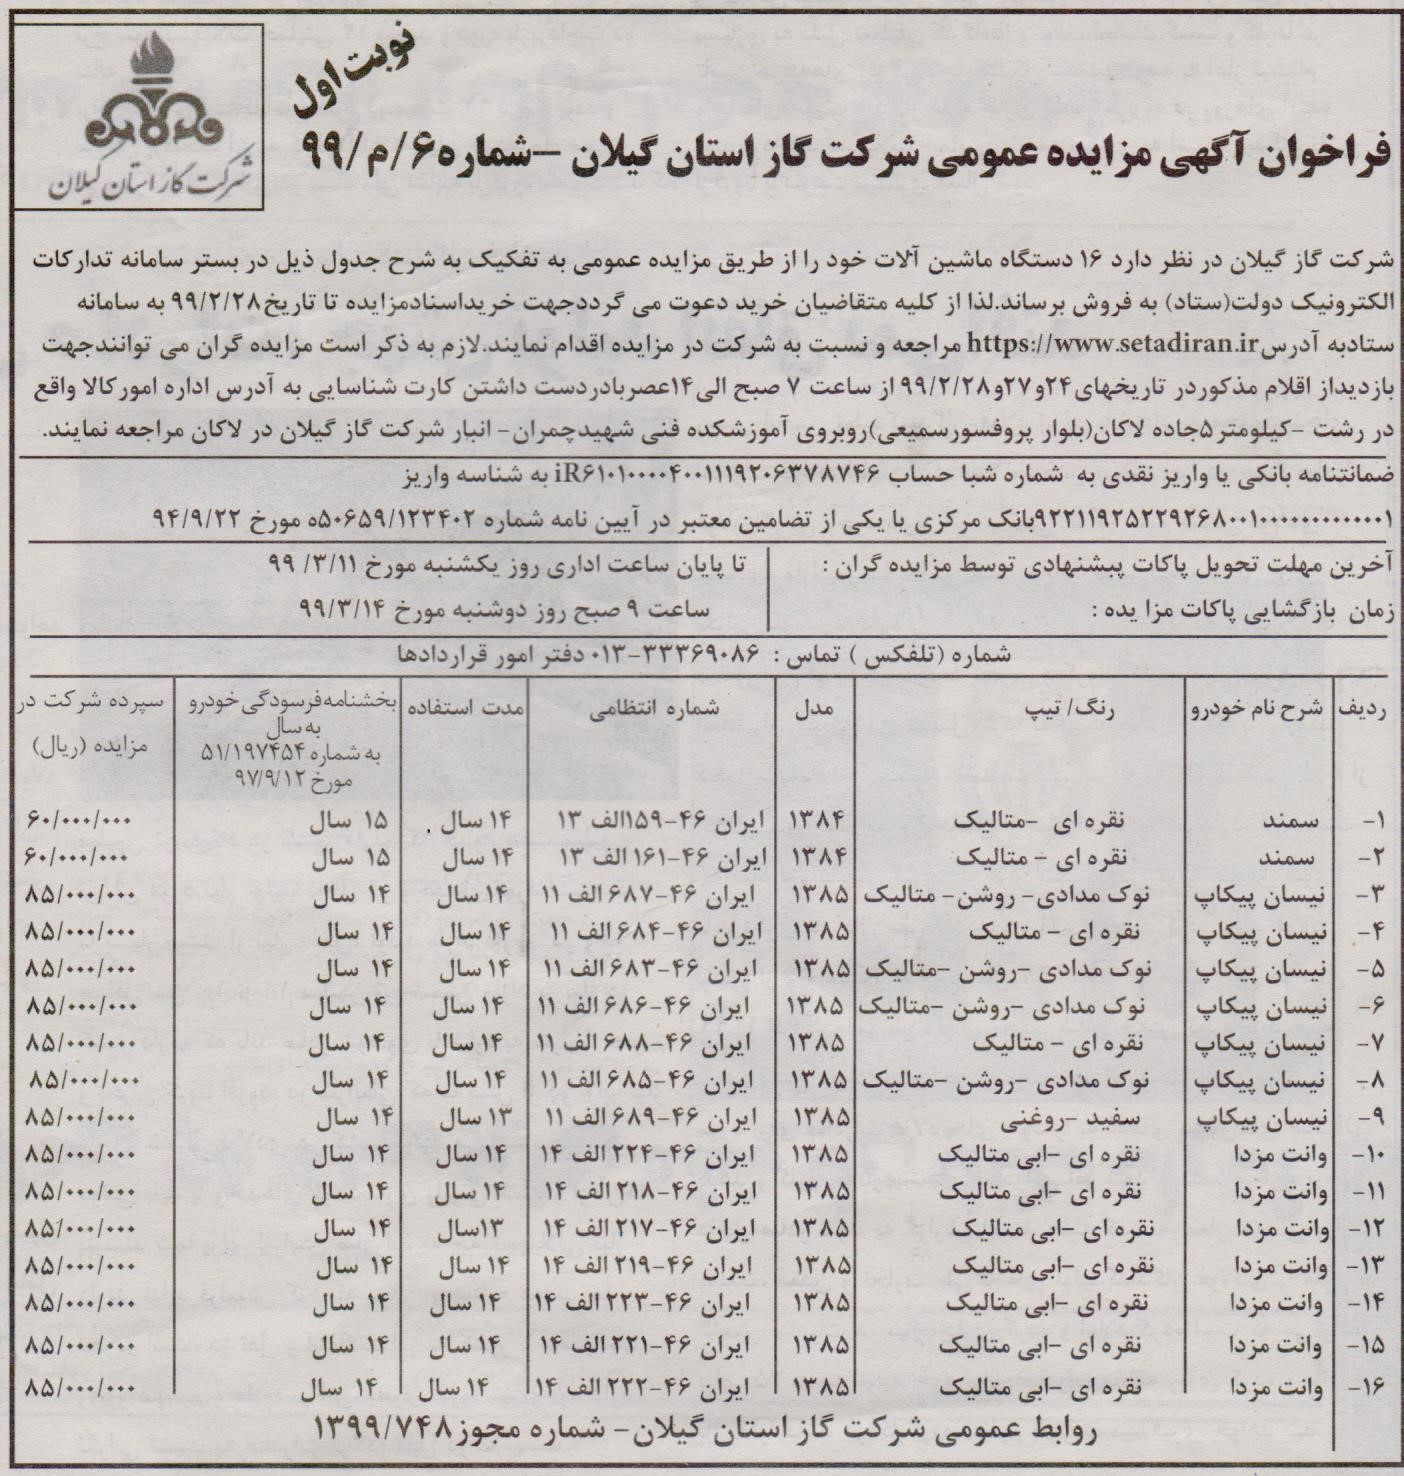 نوبت اول
شرکت گاز استان گیلان
فراخوان آگهی مزایده عمومی شرکت گاز استان گیلان –شماره۶/م/۹۹
شرکت گاز گیلان در نظر دارد ۱۶ دستگاه ماشین آلات خود را از طریق مزایده عمومی به تفکیک به شرح جدول ذیل در بستر سامانه تدارکات
الکترونیک دولت(ستاد) به فروش برساند.لذا از کلیه متقاضیان خرید دعوت می گرددجهت خریداسنادمزایده تا تاریخ۹۹/۲/۲۸ به سامانه
ستادبه آدرسhttps://www.setadiran.ir مراجعه و نسبت به شرکت در مزایده اقدام نمایند.لازم به ذکر است مزایده گران می توانندجهت
بازدیداز اقلام مذکوردر تاریخهای۲۴و۲۷و۹۹/۲/۲۸ از ساعت ۷ صبح الی۱۴عصربادردست داشتن کارت شناسایی به آدرس اداره امورکالا واقع
در رشت –کیلومتر۵جاده لاکان(بلوار پروفسورسمیعی)روبروی آموزشکده فنی شهیدچمران– انبار شرکت گاز گیلان در لاکان مراجعه نمایند.
ضمانتنامه بانکی یا واریز نقدی به شماره شبا حساب iR۶۱۰۱۰۰۰۰۴۰۰۱۱۱۹۲۰۶۳۷۸۷۴۶ به شناسه واریز
۹۲۲۱۱۹۲۵۲۲۹۲۶۸۰۰۱۰۰۰۰۰۰۰۰۰۰۰۰۰۱بانک مرکزی یا یکی از تضامین معتبر در آیین نامه شماره ۵۰۶۵۹/۱۲۳۴۰۲ه مورخ ۹۴/۹/۲۲
آخرین مهلت تحویل پاکات پیشنهادی توسط مزایده گران : تا پایان ساعت اداری روز یکشنبه مورخ ۹۹/۳/۱۱
زمان بازگشایی پاکات مزا یده : ساعت ۹ صبح روز دوشنبه مورخ ۹۹/۳/۱۴
شماره (تلفکس ) تماس : ۳۳۳۶۹۰۸۶-۰۱۳ دفتر امور قراردادها
ردیف شرح نام خودرو رنگ/ تیپ مدل شماره انتظامی مدت استفاده بخشنامه فرسودگی خودرو سپرده شرکت در
به سال
مزایده (ریال)
به شماره ۵۱/۱۹۷۴۵۴
مورخ ۹۷/۹/۱۲
۱– سمند نقره ای –متالیک ۱۳۸۴ ایران ۴۶–۱۵۹الف ۱۳ ۱۴ سال ۱۵ سال ۶۰/۰۰۰/۰۰۰
۲– سمند نقره ای – متالیک ۱۳۸۴ ایران ۴۶–۱۶۱ الف ۱۳ ۱۴ سال ۱۵ سال ۶۰/۰۰۰/۰۰۰
۳– نیسان پیکاپ نوک مدادی– روشن– متالیک ۱۳۸۵ ایران ۴۶–۶۸۷ الف ۱۱ ۱۴ سال ۱۴ سال ۸۵/۰۰۰/۰۰۰
۴– نیسان پیکاپ نقره ای – متالیک ۱۳۸۵ ایران ۴۶–۶۸۴ الف ۱۱ ۱۴ سال ۱۴ سال ۸۵/۰۰۰/۰۰۰
۵– نیسان پیکاپ نوک مدادی –روشن –متالیک ۱۳۸۵ ایران ۴۶–۶۸۳ الف ۱۱ ۱۴ سال ۱۴ سال ۸۵/۰۰۰/۰۰۰
۶– نیسان پیکاپ نوک مدادی –روشن –متالیک ۱۳۸۵ ایران ۴۶–۶۸۶ الف ۱۱ ۱۴ سال ۱۴ سال ۸۵/۰۰۰/۰۰۰
۷– نیسان پیکاپ نقره ای – متالیک ۱۳۸۵ ایران ۴۶–۶۸۸ الف ۱۱ ۱۴ سال ۱۴ سال ۸۵/۰۰۰/۰۰۰
۸– نیسان پیکاپ نوک مدادی –روشن –متالیک ۱۳۸۵ ایران ۴۶–۶۸۵ الف ۱۱ ۱۴ سال ۱۴ سال ۸۵/۰۰۰/۰۰۰
۹– نیسان پیکاپ سفید –روغنی ۱۳۸۵ ایران ۴۶–۶۸۹ الف ۱۱ ۱۳ سال ۱۴ سال ۸۵/۰۰۰/۰۰۰
۱۰– وانت مزدا نقره ای –ابی متالیک ۱۳۸۵ ایران ۴۶–۲۲۴ الف ۱۴ ۱۴ سال ۱۴ سال ۸۵/۰۰۰/۰۰۰
۱۱– وانت مزدا نقره ای –ابی متالیک ۱۳۸۵ ایران ۴۶–۲۱۸ الف ۱۴ ۱۴ سال ۱۴ سال ۸۵/۰۰۰/۰۰۰
۱۲– وانت مزدا نقره ای –ابی متالیک ۱۳۸۵ ایران ۴۶–۲۱۷ الف ۱۴ ۱۳سال ۱۴ سال ۸۵/۰۰۰/۰۰۰
۱۳– وانت مزدا نقره ای –ابی متالیک ۱۳۸۵ ایران ۴۶–۲۱۹ الف ۱۴ ۱۴ سال ۱۴ سال ۸۵/۰۰۰/۰۰۰
۱۴– وانت مزدا نقره ای –ابی متالیک ۱۳۸۵ ایران ۴۶–۲۲۳ الف ۱۴ ۱۴ سال ۱۴ سال ۸۵/۰۰۰/۰۰۰
۱۵– وانت مزدا نقره ای –ابی متالیک ۱۳۸۵ ایران ۴۶–۲۲۱ الف ۱۴ ۱۴ سال ۱۴ سال ۸۵/۰۰۰/۰۰۰
۱۶– وانت مزدا نقره ای –ابی متالیک ۱۳۸۵ ایران ۴۶–۲۲۲ الف ۱۴ ۱۴ سال ۱۴ سال ۸۵/۰۰۰/۰۰۰
روابط عمومی شرکت گاز استان گیلان– شماره مجوز۱۳۹۹/۷۴۸